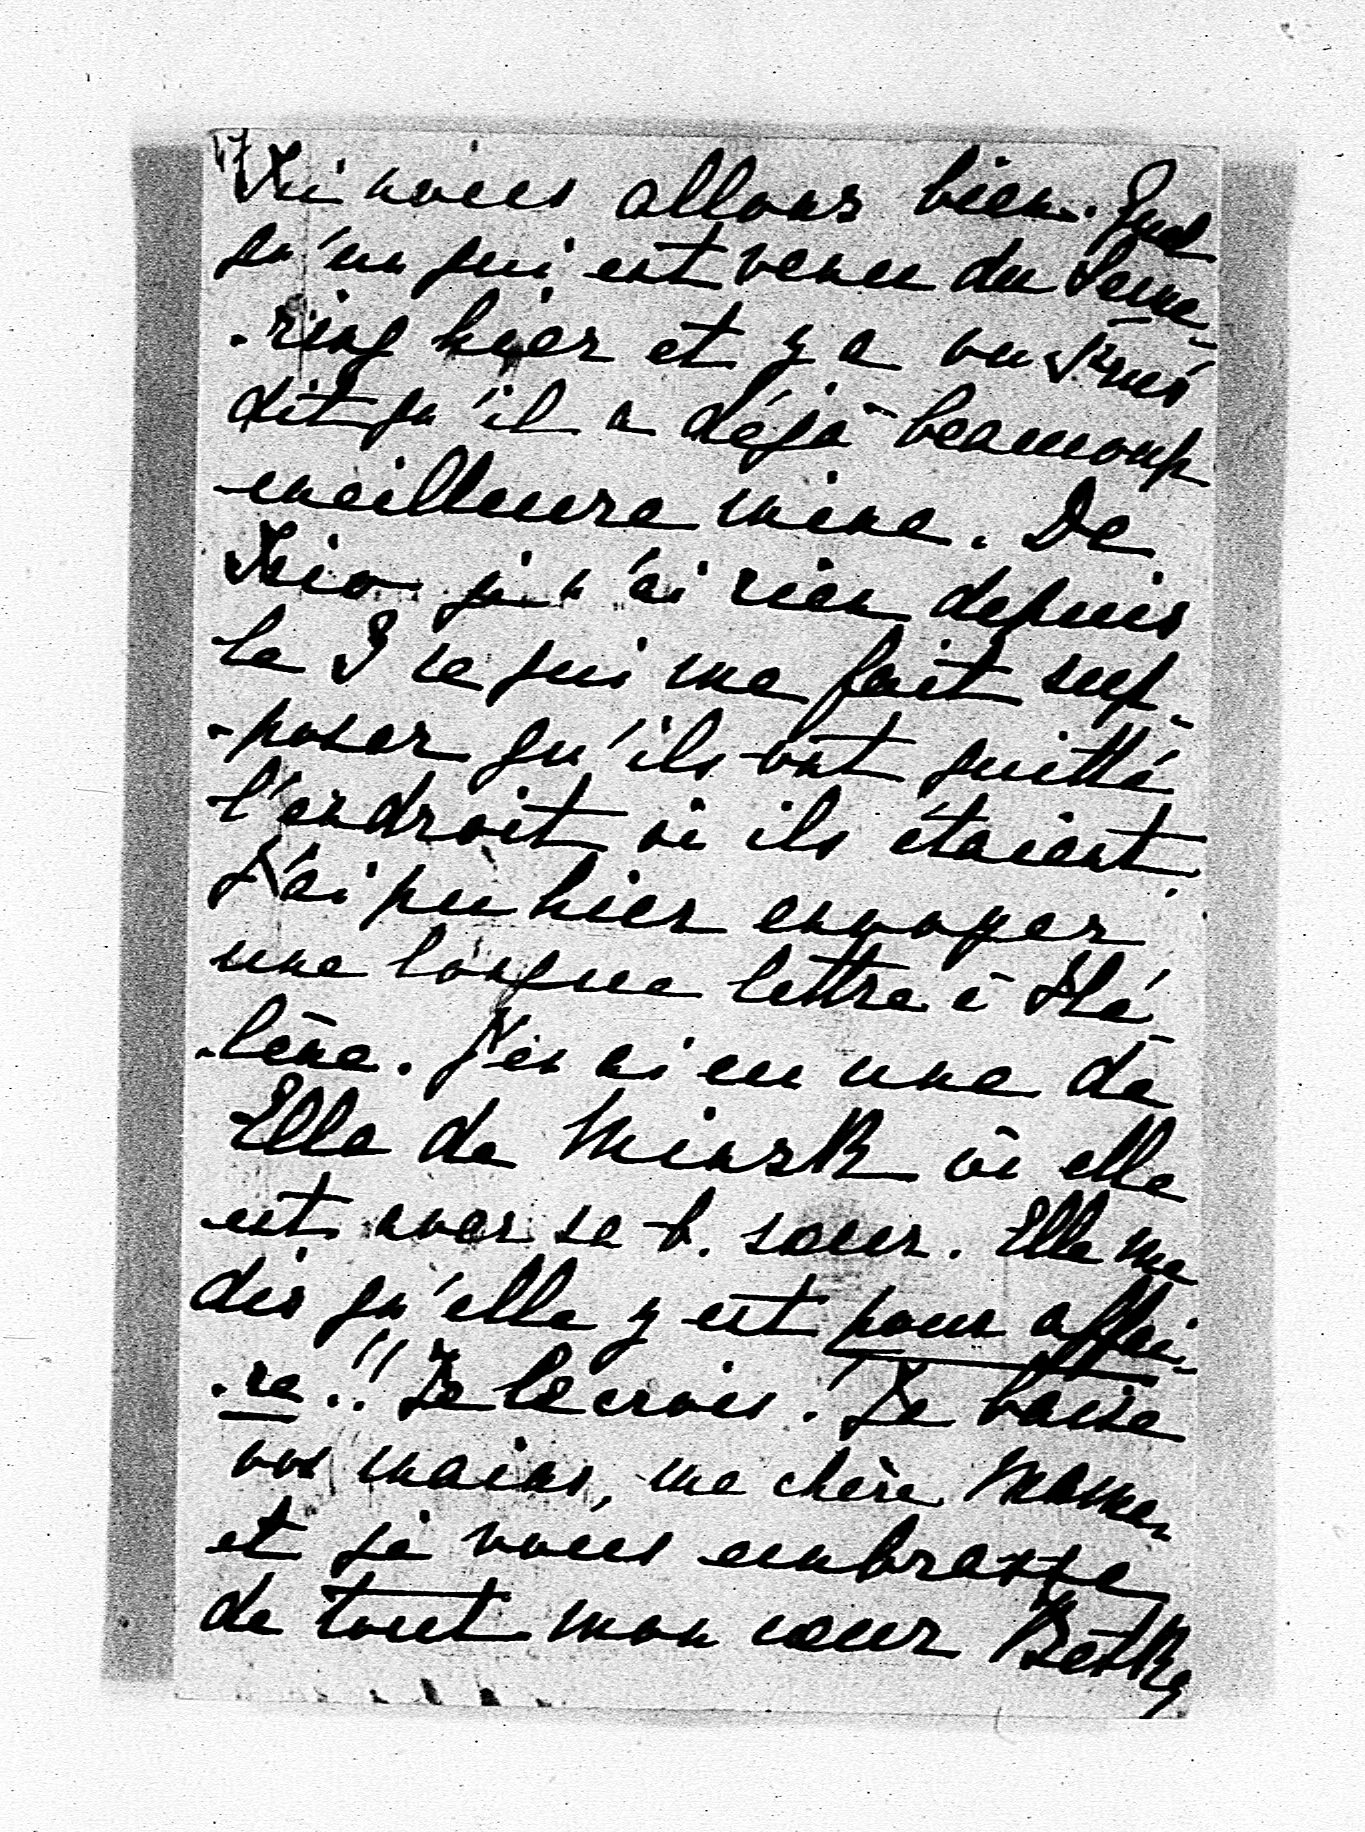 Ici nous allons bien. Quel
qu'un qui est venu du Seme-
-ring hier et y a vu
dit qu'il a déjà beaucoup
meilleure mine. De
je n'ai rien depuis
le 3 ce qui me fait sup-
-poser qu'ils ont quitté
l'endroit où ils étaient.
J'ai pu hier envoyer
une longue lettre à Hé-
-lène. J'en ai eu une de
Ella de Minsk où elle
est avec sa b. sœur. Elle me
dis qu'elle y est pour affai-
-re!! Je le crois! Je baise
vos mains, ma chère Maman
et je vous embrasse
de tout mon cœur